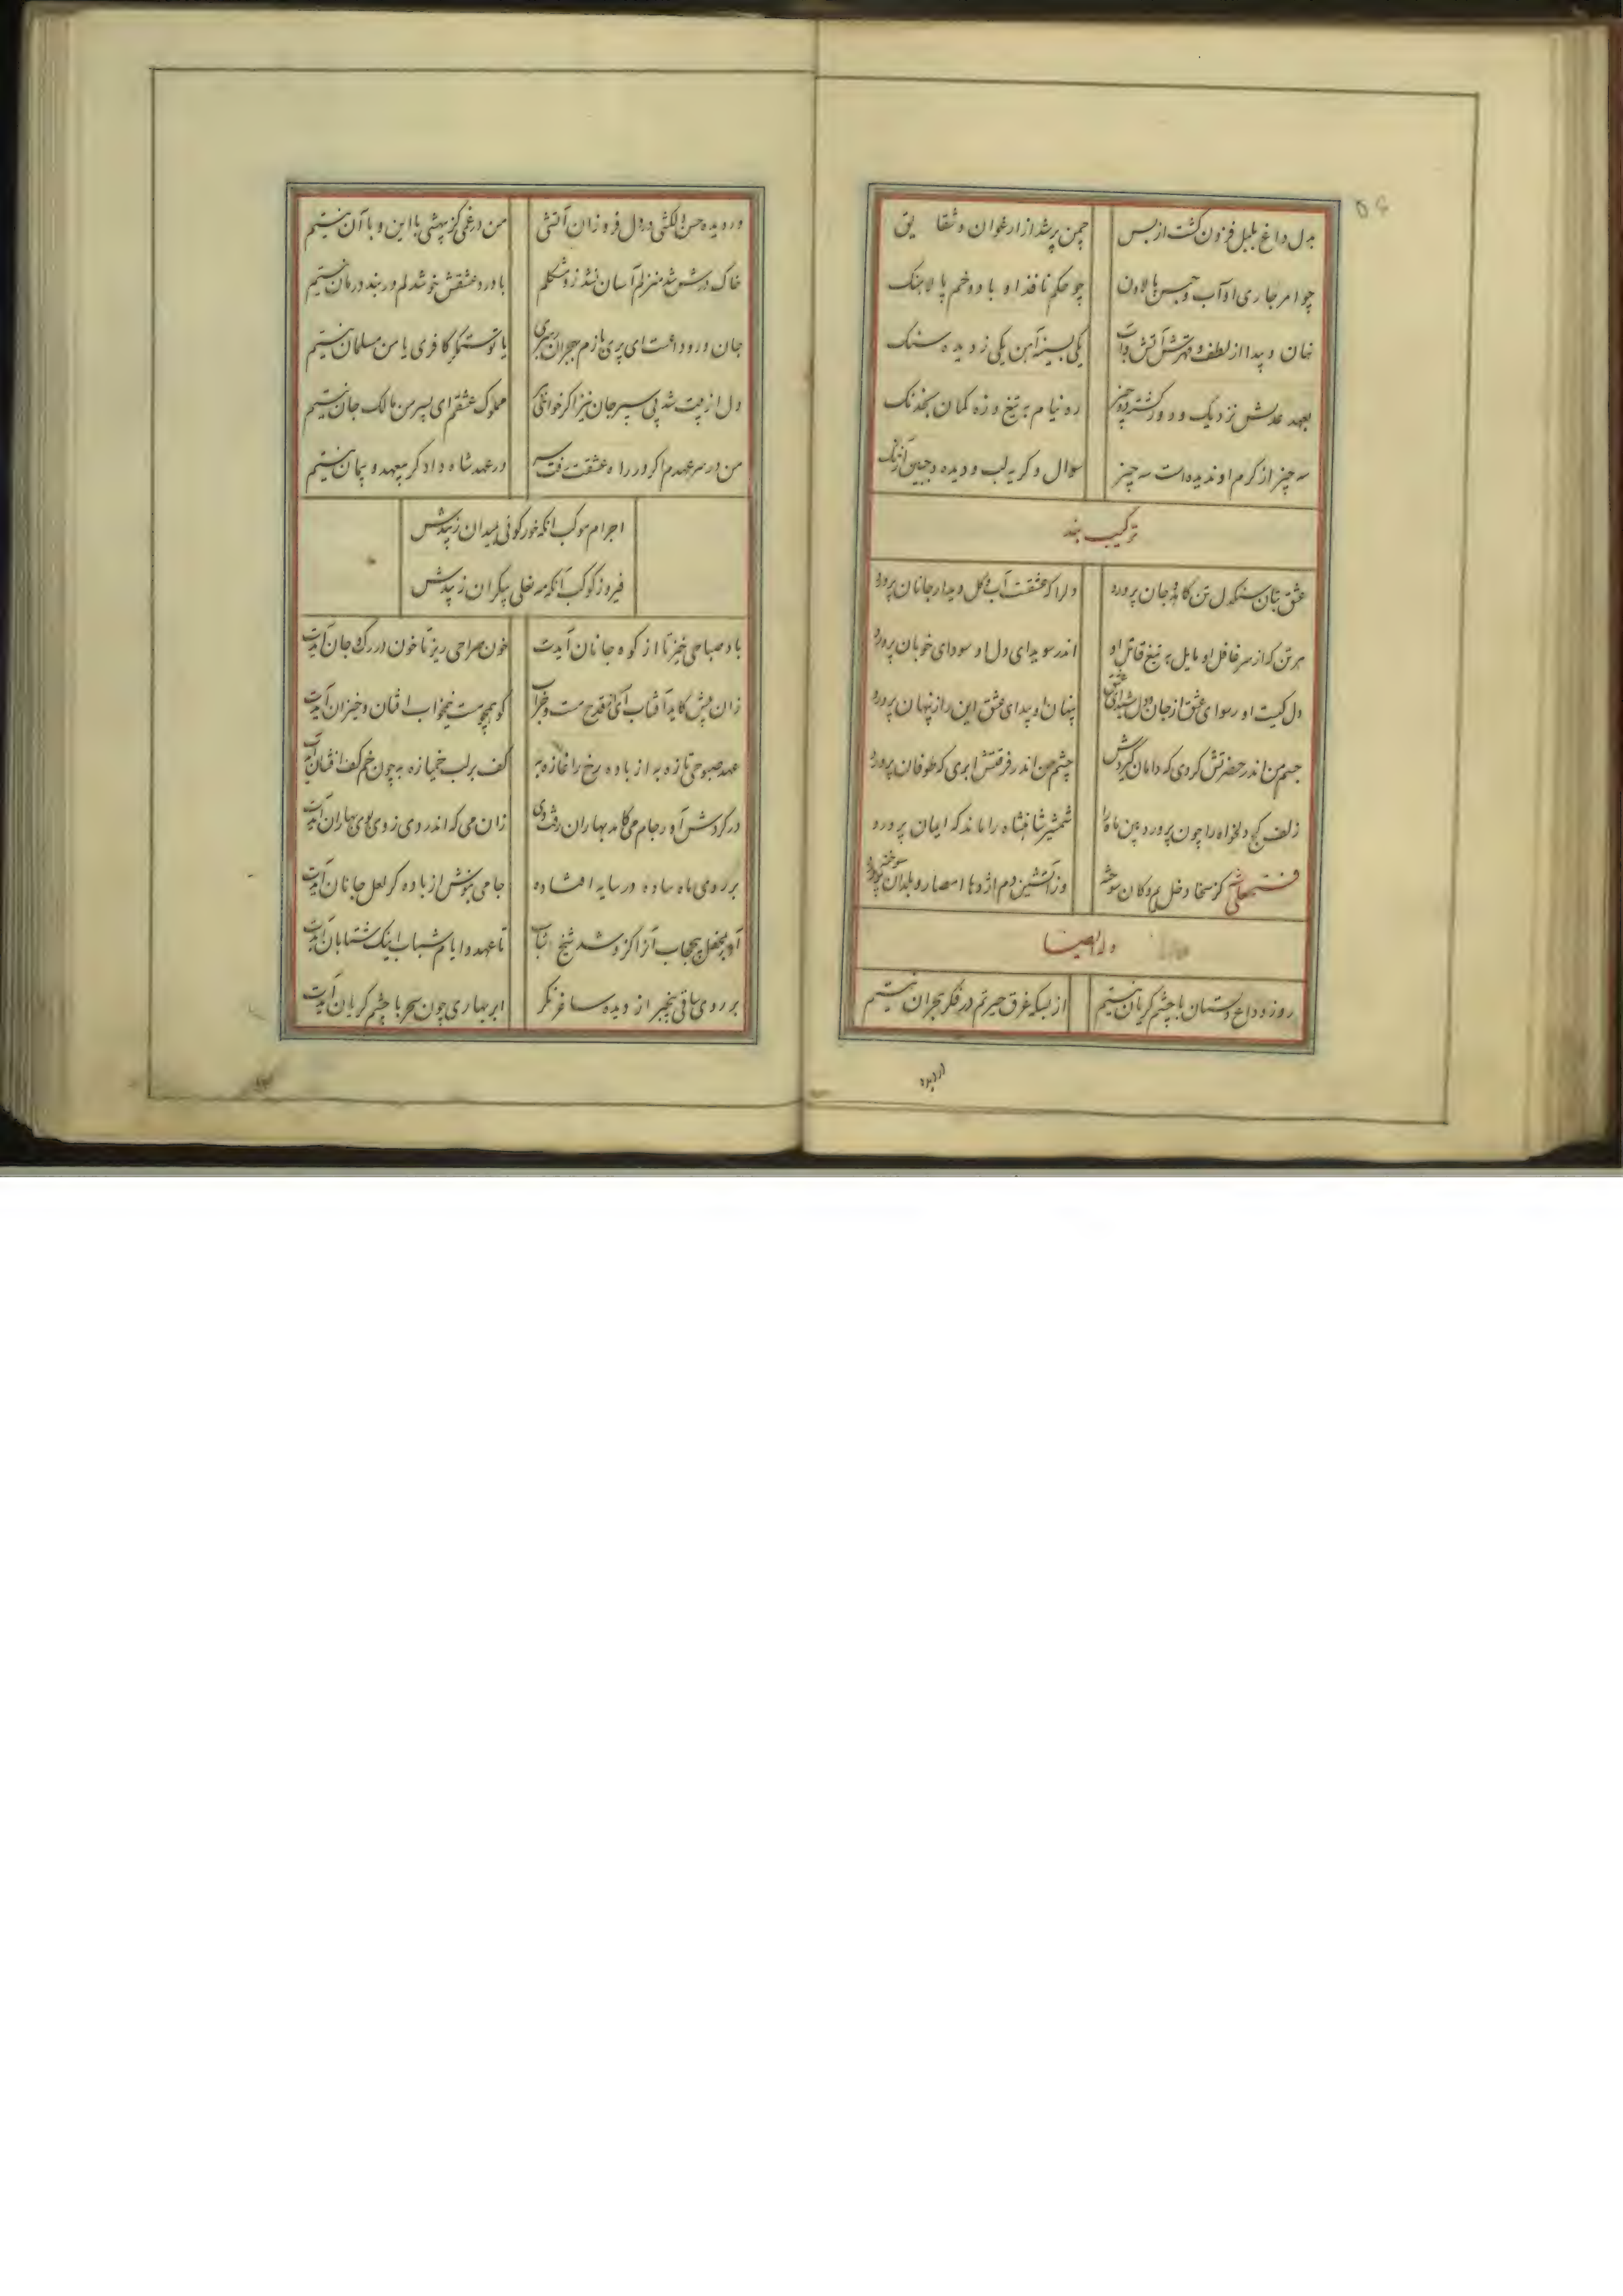 ۵۶
بدل داغ بلبل فزون گشت از بس چمن پر شد از ارغوان و شقایق
چو امر جاری او آب و جسم بالاون چو حکم نافذ او باد و خم پالاهنگ
نهان و پیدا از لطف و قهرش آتش و آب یکی بسینهٔ آهن یکی ز دیده سنگ
بعهد عدلش نزدیک و دور گشته دو چیز ره نیام بتیغ و زه کمان بخدنگ
سه چیز از کرم او ندیده است سه چیز سوال و گریه لب و دیده و جبین آژنگ
ترکیب بند
عشق بتان سنگدل تن کاهد جان پرورد دلرا که عشقت آب و گل دیدار جانان پرورد
هر تن که از سر غافل او مایل بتیغ قاتل او اندر سویدای دل او سودای خوبان پرورد
دل کیست او رسوای عشق از جان و دل شیدای عشق پنهان او پیدای عشق این راز پنهان پرورد
جسم من اندر حضرتش گردی که دامان گیردش چشم من اندر فرقتش ابری که طوفان پرورد
زلف کج دلخواه را چون پرورد بین ماه را شمشیر شاهنشاه را ماند که ایمان پرورد
فتحعلی شه کز سخا دخل یم و کان سوخته وز آتشین دم اژدها امصار و بلدان سوخته
وله ایضا
روز وداع دوستان با چشم گریان نیستم از بسکه غرق حیرتم در فکر هجران نیستم
از دیده
در دیده حسن دلکشی در دل فروزان آتشی من دوزخی کز بیهشی با این و با آن نیستم
خاک درش شد منزلم آسان نشد زو مشکلم با درد عشقش خوشدلم در بند درمان نیستم
جان در وداعت ای پری بازم بهجران میبری یا تو ستمگر کافری یا من مسلمان نیستم
دل از پیت شد پی سپر جان نیز اگر خواهی مملوک عشقم ای پسر من مالک جان نیستم
من در سر عهدم اگر در راه عشقت رفت سر در عهد شاه دادگر بیعهد و پیمان نیستم
اجرام موکب آنکه خور گوئی بمیدان زیبدش
فیروز کوکب آنکه مه نعلی بیکران زیبدش
باد صباحی خیز تا از کوه جانان آیدت خون صراحی ریز تا خون در رگ جان آیدت
زان پیش کاید آفتاب آی از قدح مست و خراب کو همچو مست نیمخواب افتان و خیزان آیدت
عهد صبوحی تازه به از باده رخ را غازه به کف بر لب خمیازه به چون خم کف افشان آیدت
در گردش آور جام می کامد بهاران رفت دی زان می که اندر وی ز وی بوی بهاران آیدت
بر روی ماه ساده در سایه افتاده جامی بنوش از باده کز لعل جانان آیدت
آور بمحفل بیحجاب آنرا کزو شد شیخ شاب تا عهد و ایام شباب اینک شتابان آیدت
بر روی ساقی بیخبر از دیده ساغر نگر ابر بهاری چون سحر با چشم گریان آیدت